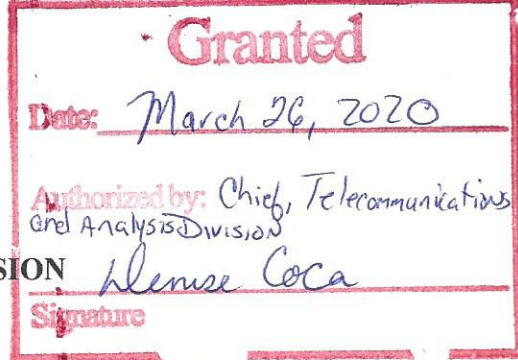 Granted
Date: March 26, 2020
Authorized by: Chief, Telecommunications
and Analysis Division
SION
Denise Coca
Signature